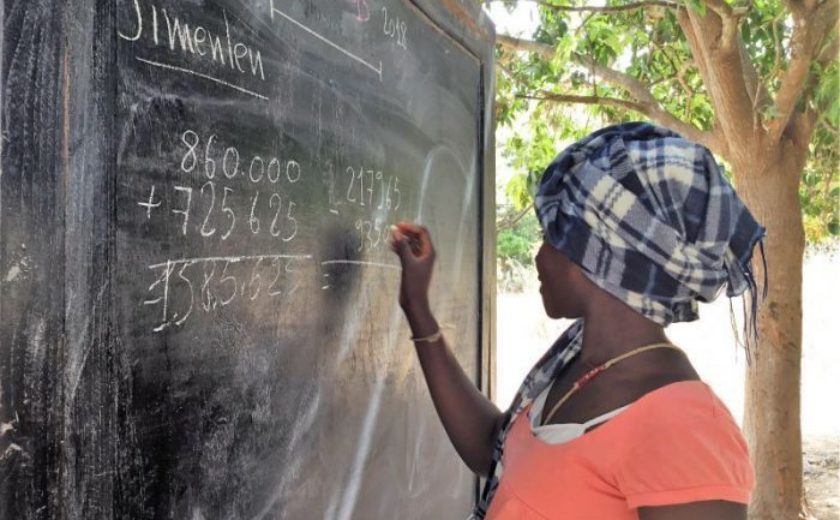 Jimenlen
2018
860.000
+ 725 625
1.585.625
217965
-
=